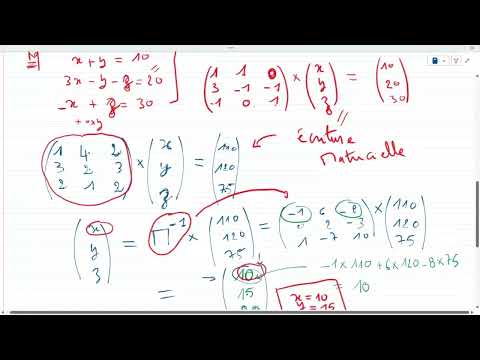 x + y = 10
3x - y - z = 20
-x + z = 30
+ 0xy
( 1 1 0 ; 3 -1 -1 ; -1 0 1 ) × ( x ; y ; z ) = ( 10 ; 20 ; 30 )
( 1 4 2 ; 3 2 3 ; 2 1 2 ) × ( x ; y ; z ) = ( 110 ; 120 ; 75 )
Écriture
Matricielle
( x ; y ; z ) = M⁻¹ × ( 110 ; 120 ; 75 ) = ( -1 6 -8 ; 0 2 -3 ; 1 -7 10 ) × ( 110 ; 120 ; 75 )
-1 × 110 + 6 × 120 - 8 × 75
= 10
= ( 10 ; 15
x = 10
y = 15